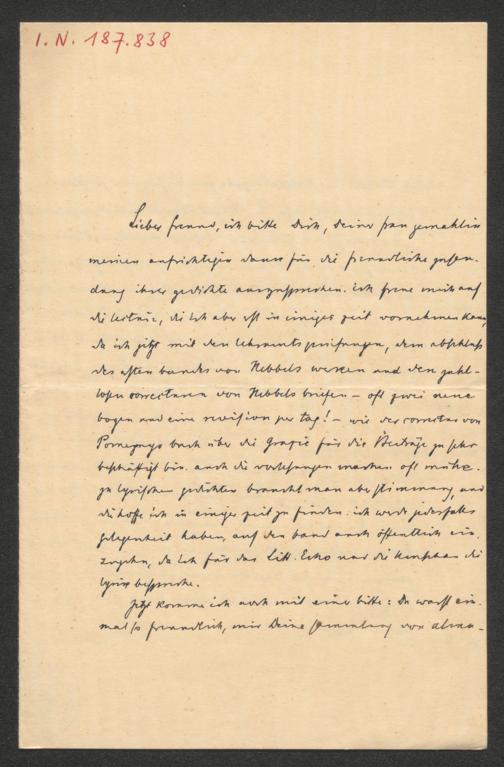 I. N. 187.838
Lieber freund, ich bitte Dich, Deiner frau gemahlin
meinen aufrichtigen dank für die freundliche zusen-
dung ihrer gedichte auszusprechen. ich freue mich auf
die lectüre, die ich aber erst in einiger zeit vornehmen kann,
da ich jetzt mit den lehramtsprüfungen, dem abschluss
des ersten bandes von Hebbels werken und den zahl-
losen correcturen von Hebbels briefen – oft zwei neue
bogen und eine revision per tag! – wie der correctur von
Pomeznys buch über die Grazie für die Beiträge zu sehr
beschäftigt bin. auch die vorlesungen machen oft mühe.
zu lyrischen gedichten braucht man aber stimmung, und
die hoffe ich in einiger zeit zu finden. ich werde jedesfalls
gelegenheit haben, auf den band auch öffentlich ein-
zugehn, da ich für das Litt. Echo und die die
lyrik bespreche.
Jetzt komme ich noch mit einer bitte: Du warst ein-
mal so freundlich, mir Deine sammlung von alma-